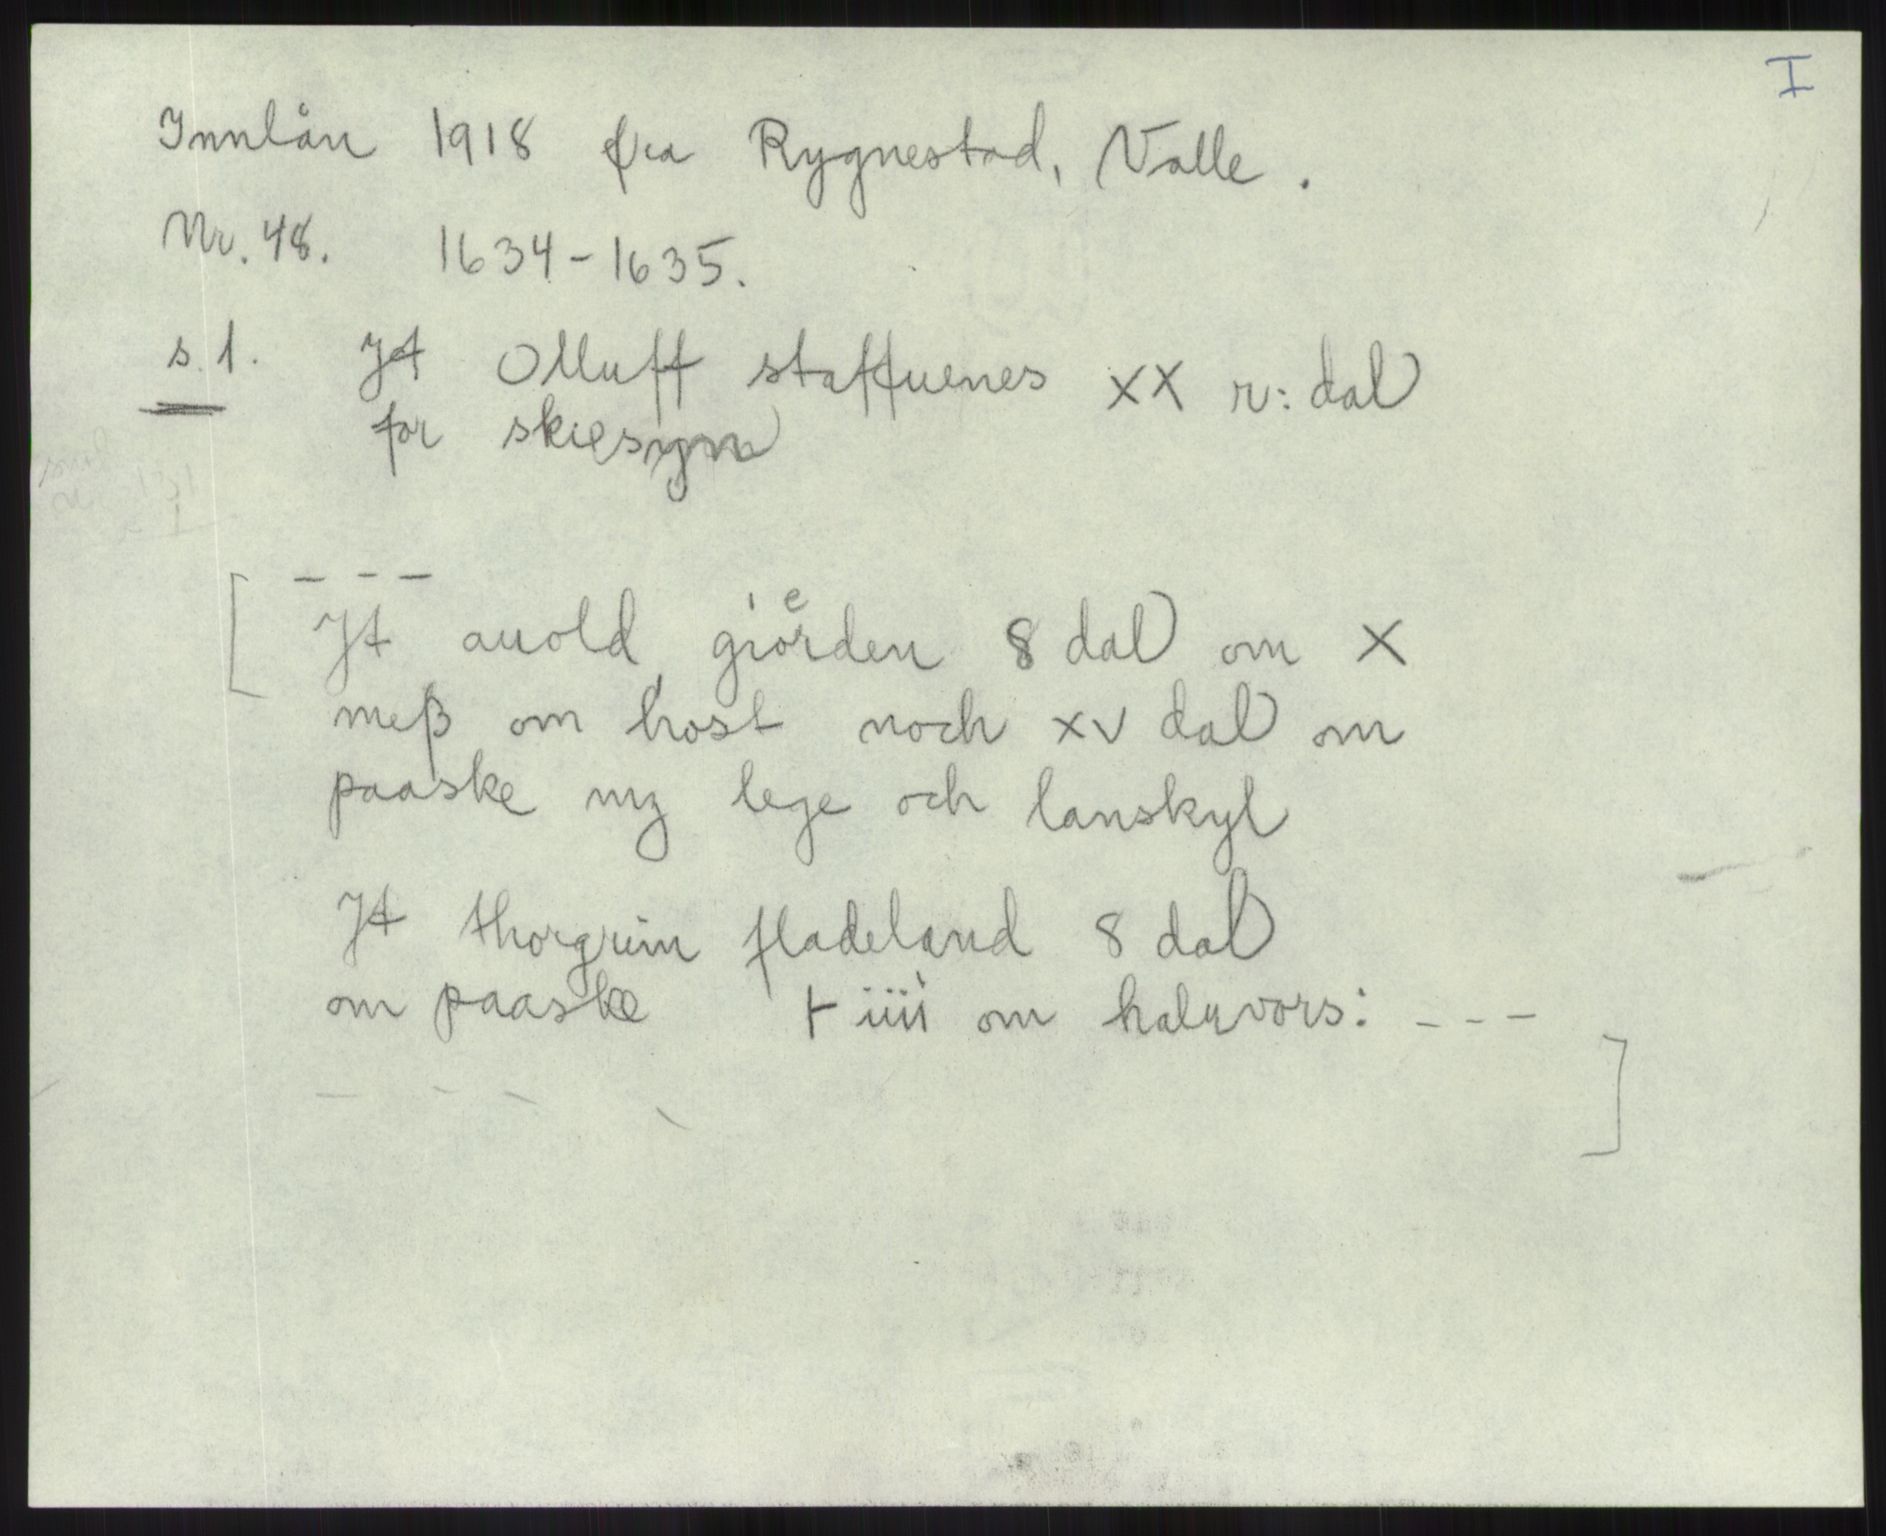 I
Innlån 1918 fra Rygnestad, Valle.
Nr. 48. 1634-1635.
s. 1. Jt Olluff staffuenes XX r: dal
for skiesyn
[ - - -
Jt auold giörden 8 dal om X
meß om host noch xv dal om
paaske mz lege och lanskyl
Jt thorgrim fladeland 8 dal
om paaske iiii om haluvors: - - -
]